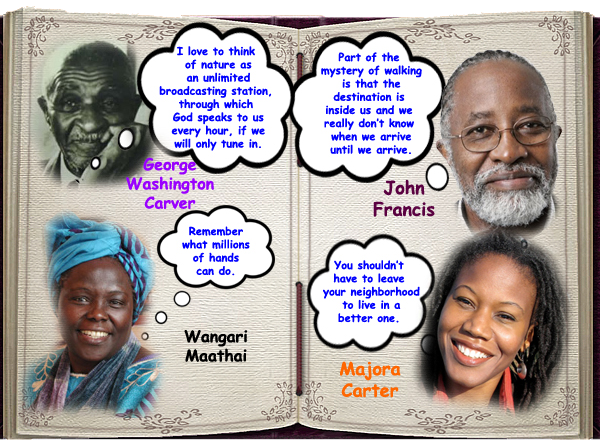 I love to think
of nature as
an unlimited
broadcasting station,
through which
God speaks to us
every hour, if we
will only tune in.
George
Washington
Carver
Part of the
mystery of walking
is that the
destination is
inside us and we
really don't know
when we arrive
until we arrive.
John
Francis
Remember
what millions
of hands
can do.
Wangari
Maathai
You shouldn't
have to leave
your neighborhood
to live in a
better one.
Majora
Carter